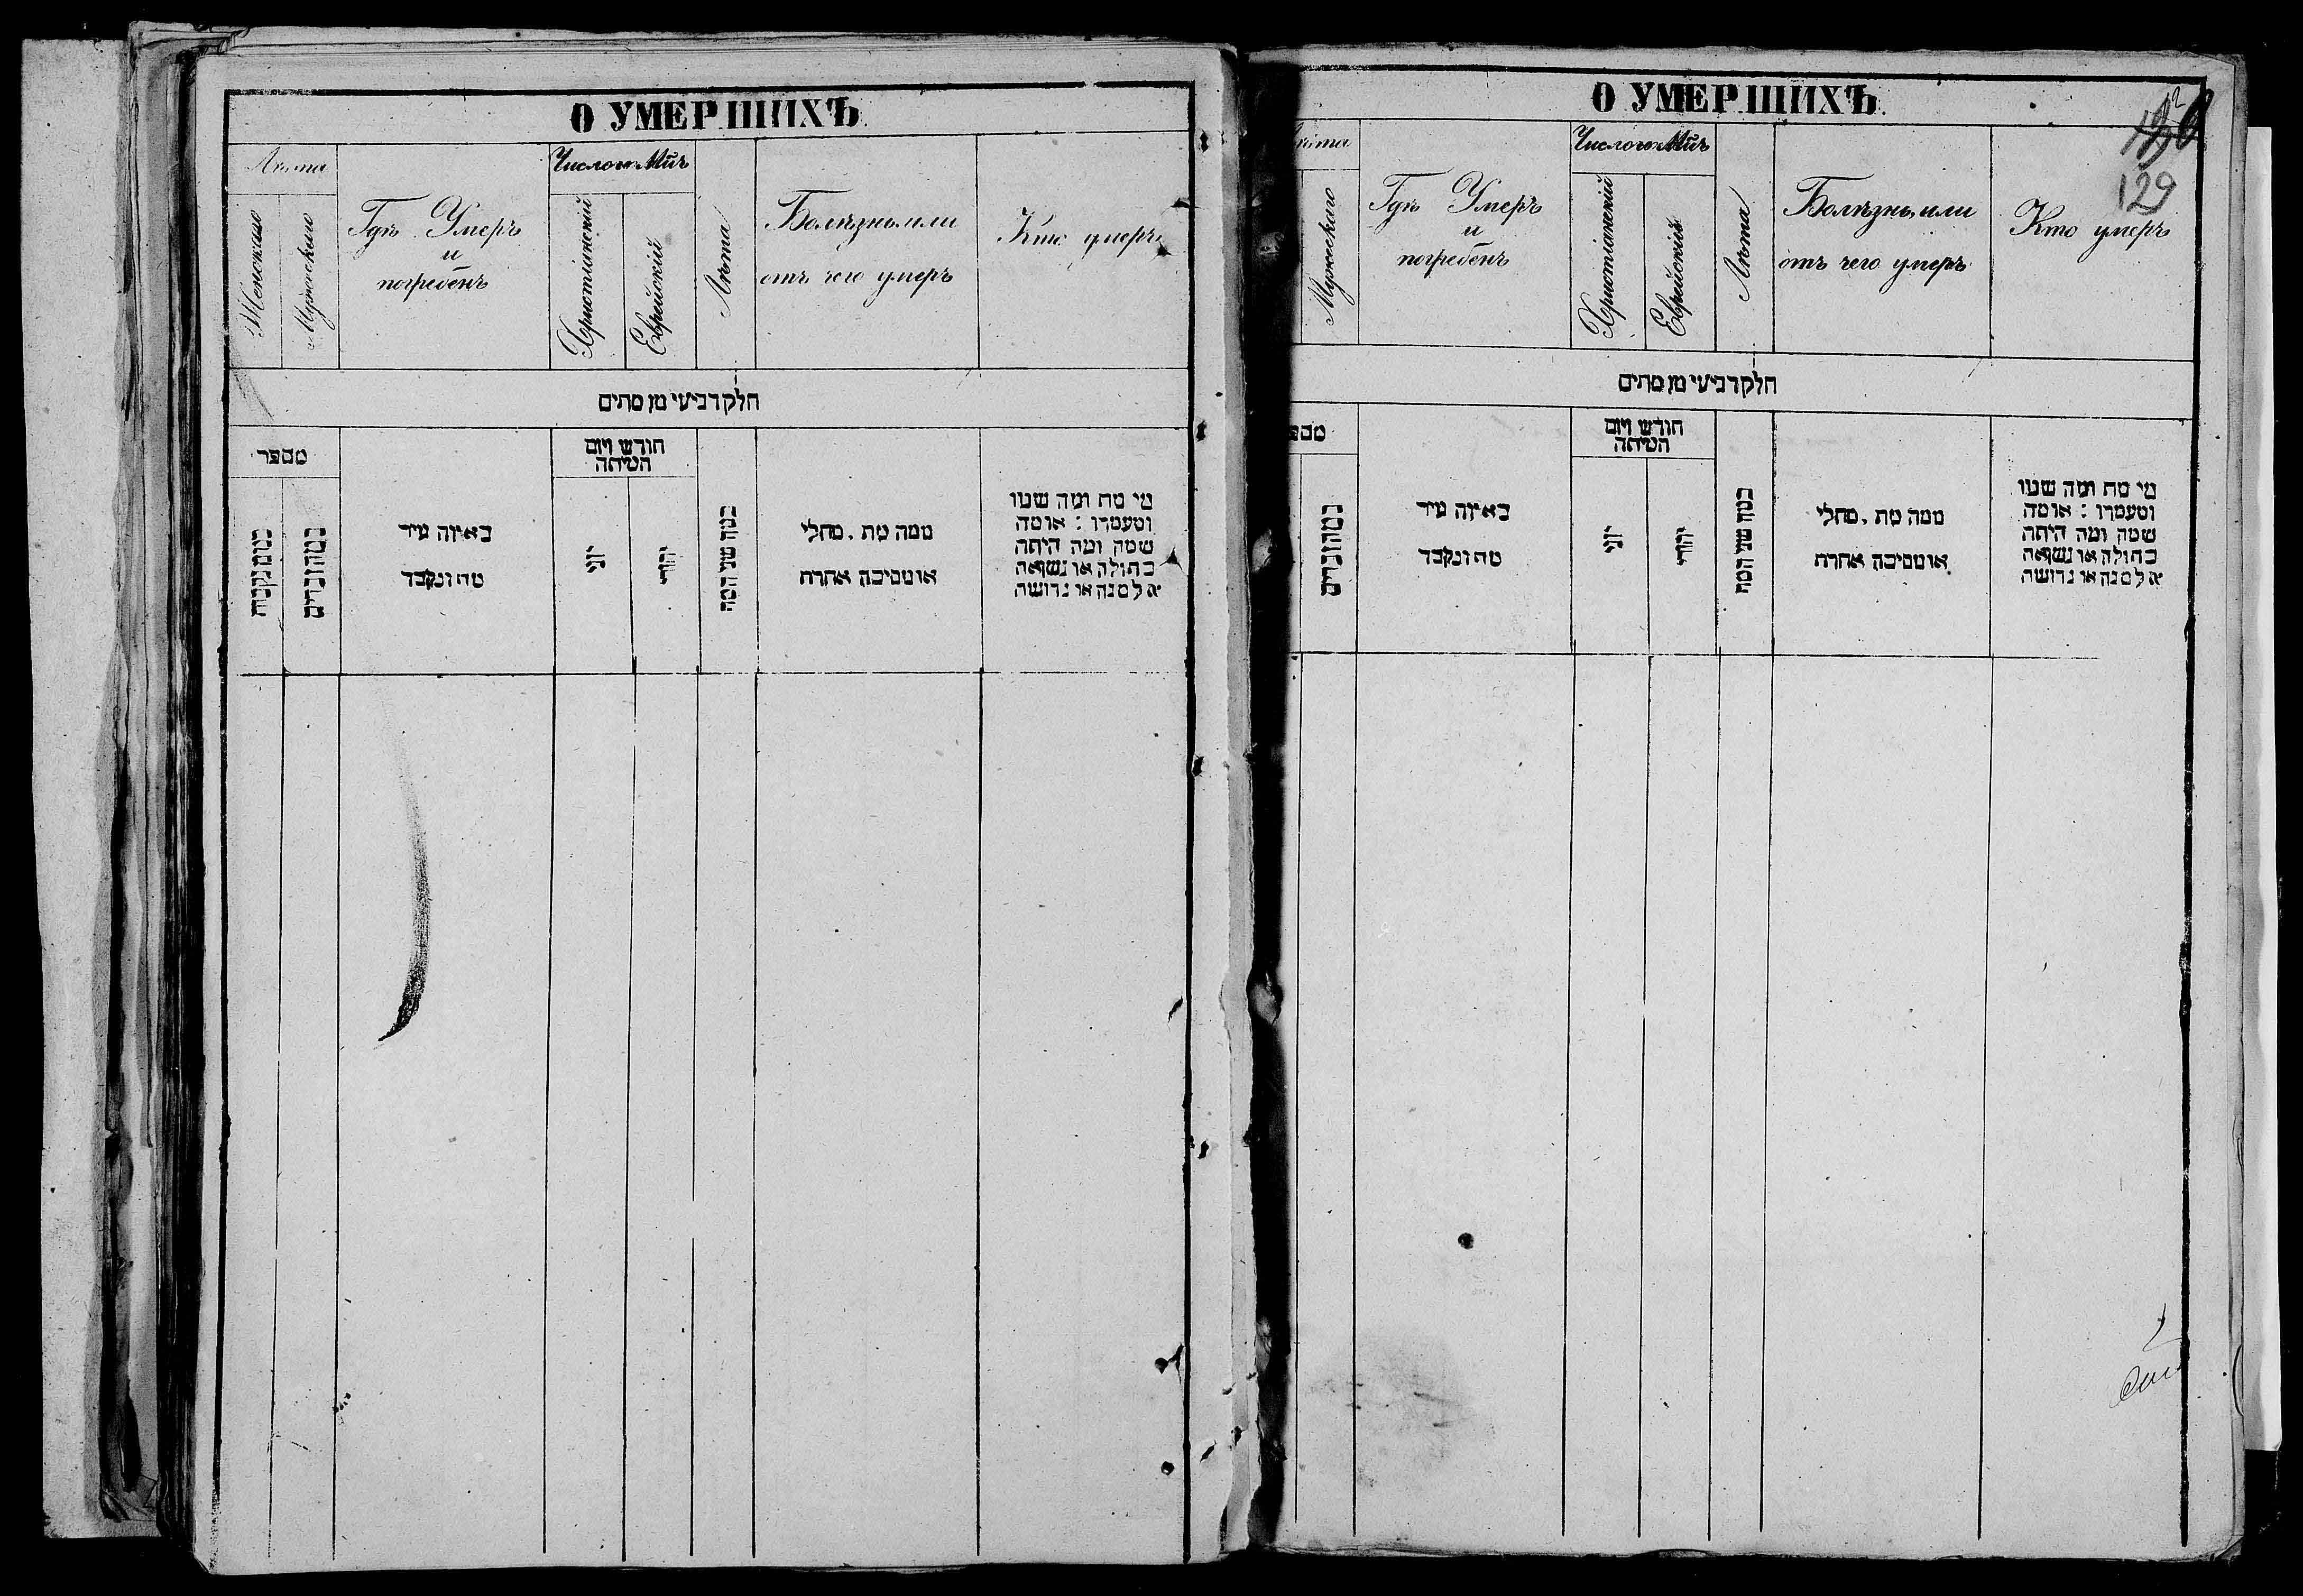 О УМЕРШИХЪ
Лѣта
Женскаго
Мужескаго
Гдѣ Умеръ
и
погребенъ
Число и Мцъ
Христіянскій
Еврейскій
Лѣта
Болѣзнь или
отъ чего умеръ
Кто умеръ
חלק רביעי מן מתים
מספר
כמה נקבות
כמה זכרים
באיזה עיר
מת ונקבר
חודש ויום
המיתה
יוני
יהודי
כמה שני המת
ממה מת . מחלי
או מסיבה אחרת
מי מת ומה שמו
ומעמדו : או מה
שמה ומה היתה
בתולה או נשואה
אלמנה או גרושה
О УМЕРШИХЪ.
129
Мужескаго
Гдѣ Умеръ
и
погребенъ
Число и Мцъ
Христіянскій
Еврейскій
Лѣта
Болѣзнь или
отъ чего умеръ
Кто умеръ
חלק רביעי מן מתים
כמה זכרים
באיזה עיר
מת ונקבר
חודש ויום
המיתה
יוני
יהודי
כמה שני המת
ממה מת . מחלי
או מסיבה אחרת
מי מת ומה שמו
ומעמדו : או מה
שמה ומה היתה
בתולה או נשואה
אלמנה או גרושה